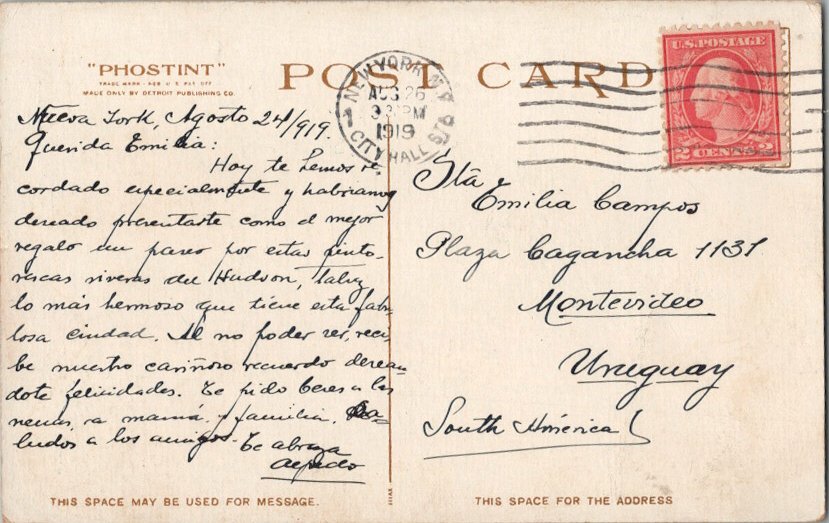 "PHOSTINT"
TRADE MARK · REG. U.S. PAT. OFF.
MADE ONLY BY DETROIT PUBLISHING CO.
POST CARD
NEW YORK, N.Y.
AUG 26
3 PM
1919
CITY HALL STA.
U.S. POSTAGE
2 CENTS 2
Nueva York, Agosto 24/919.
Querida Emilia:
Hoy te hemos re
cordado especialmente y habriamos
deseado presentarte como el mejor
regalo un paseo por estas pinto-
rescas riveras del Hudson, talvez
lo más hermoso que tiene esta fabu
losa ciudad. Al no poder ser, reci
be nuestro cariñoso recuerdo desean
dote felicidades. Te pido beses a las
nenas, a mamá y familia. Sa-
ludos a los amigos. Te abraza
Alfredo
Sta
Emilia Campos
Plaza Cagancha 1131
Montevideo
Uruguay
South América
THIS SPACE MAY BE USED FOR MESSAGE.
THIS SPACE FOR THE ADDRESS